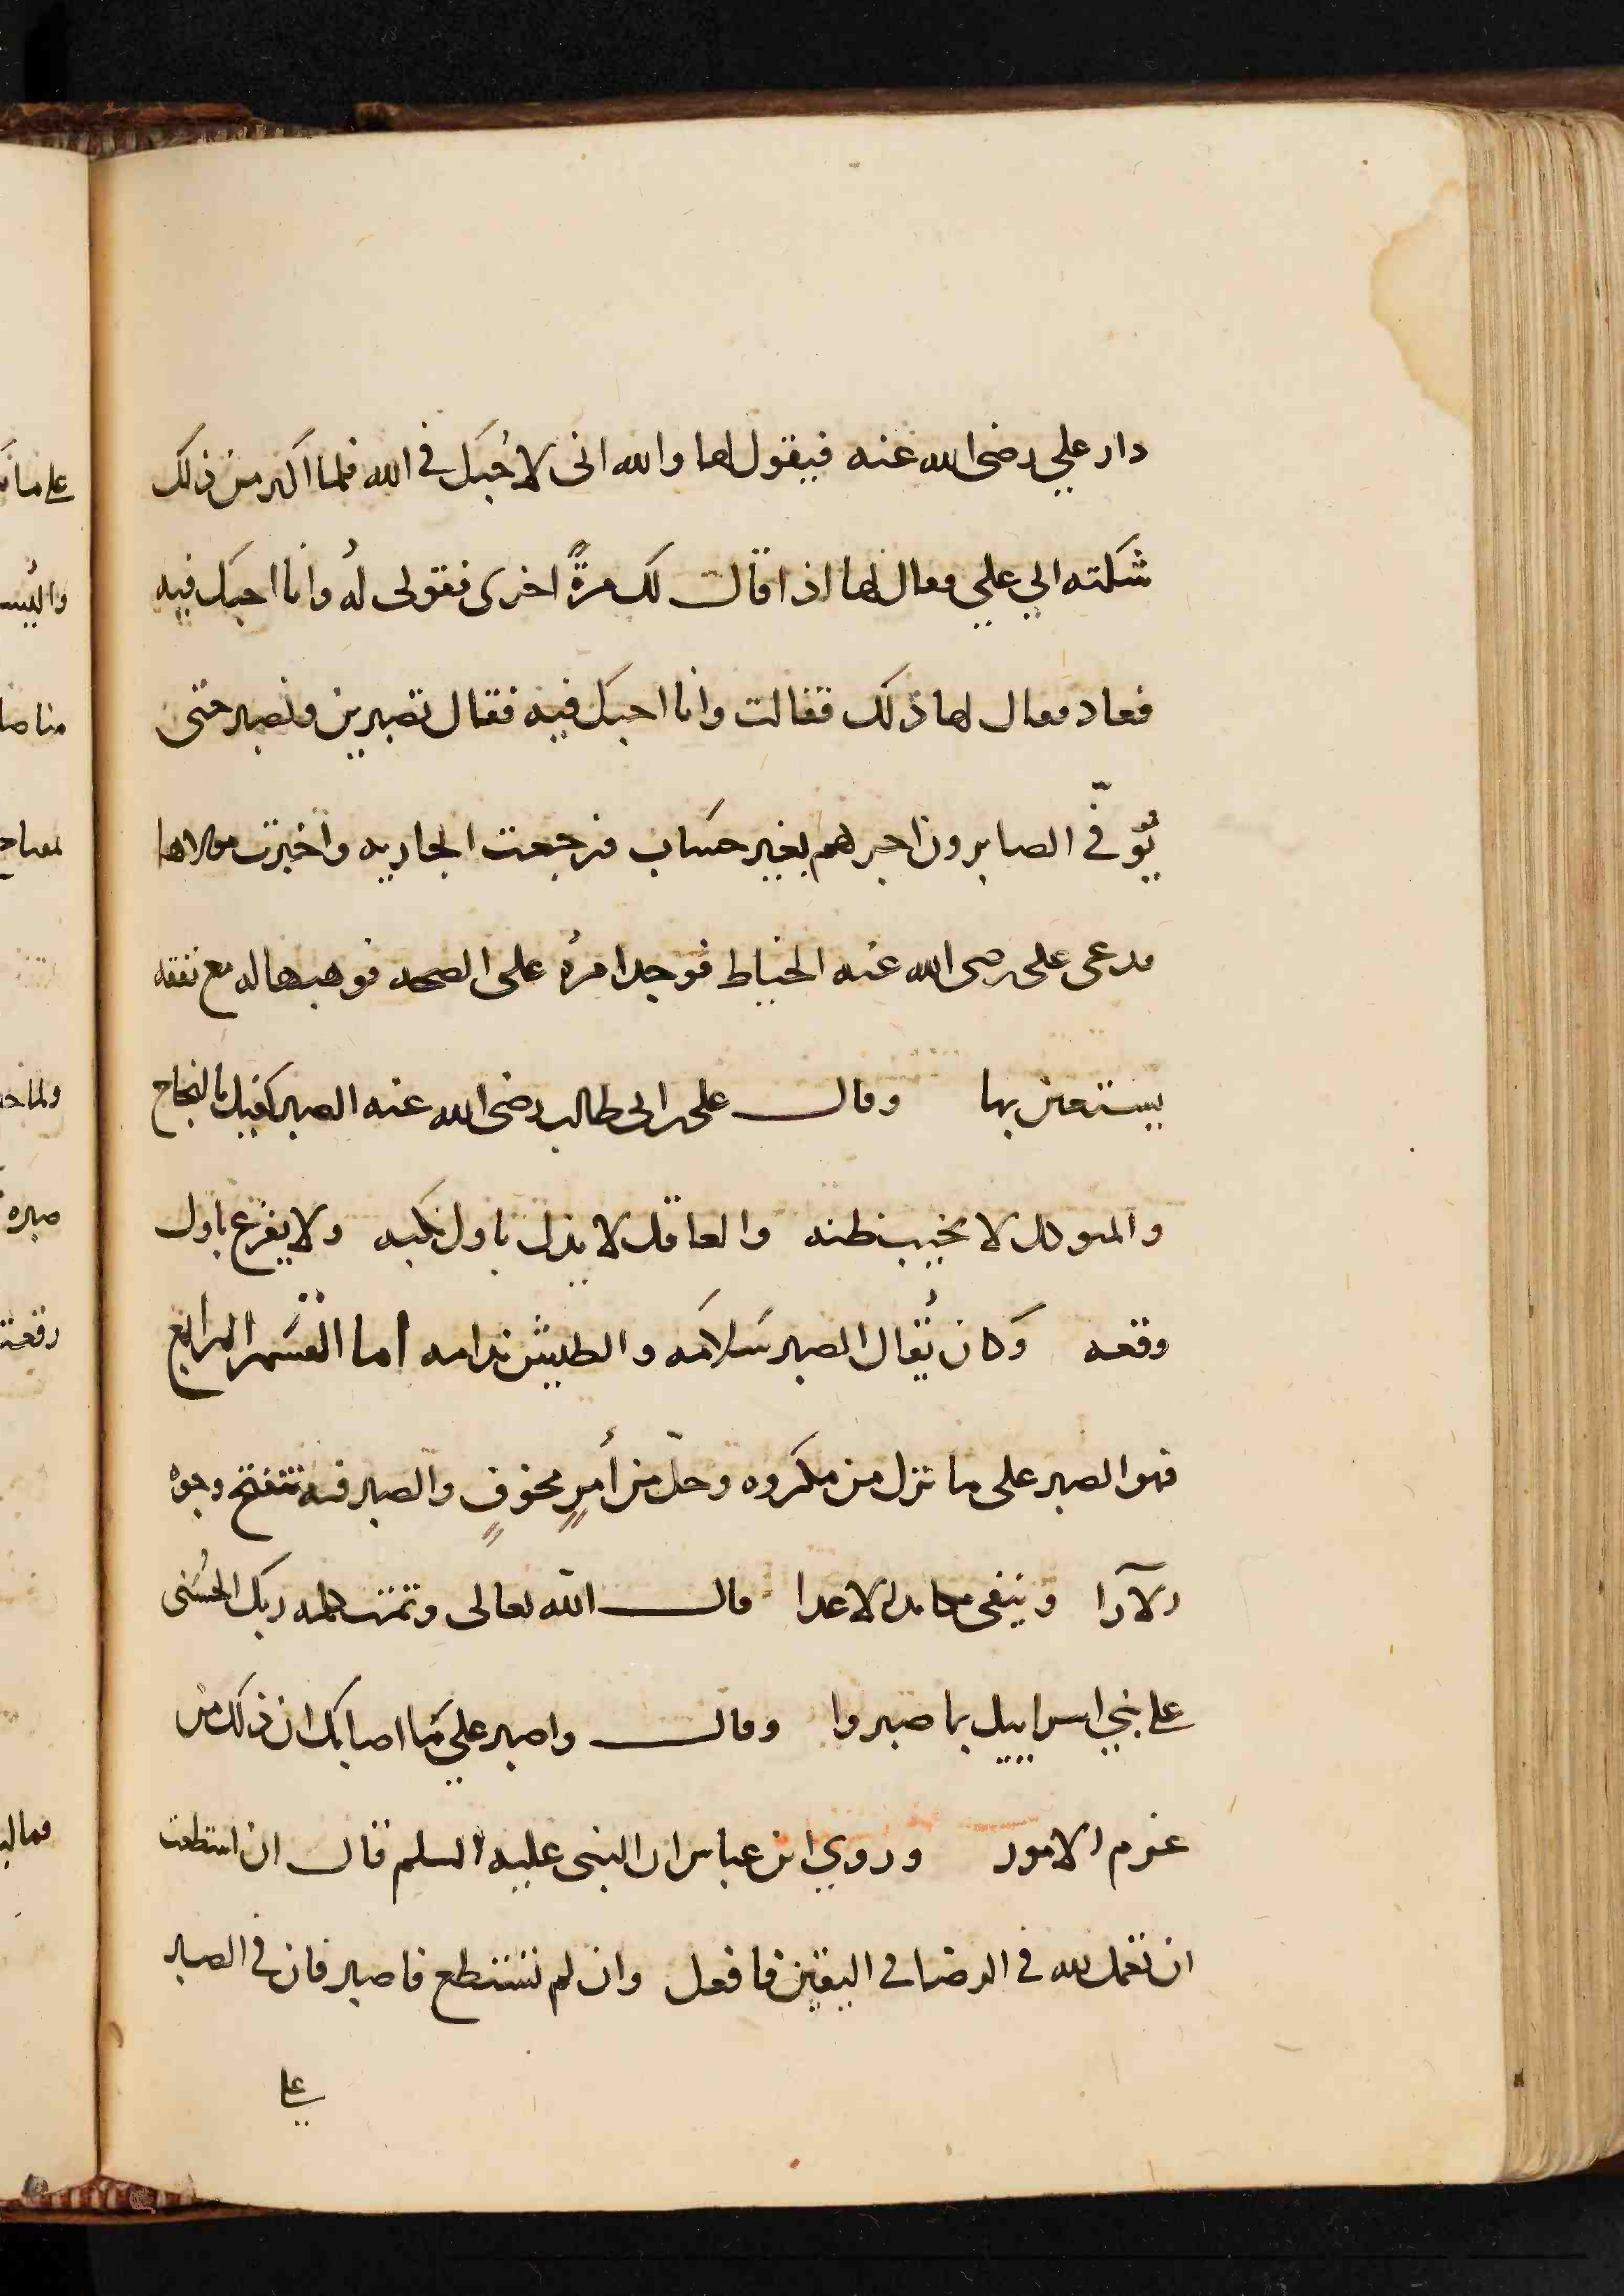 دار علي رضى الله عنه فيقول لها والله انى لاحُبك في الله فلما اكثر من ذلك
شكته الي علي فقال لها اذا قال لك مرةً اخرى فقولى لهُ وانا احبك فيه
فعاد فقال لها ذلك فقالت وانا احبك فيه فقال تصبرين ونصبر حتى
يُوفّى الصابرون اجرهم بغير حساب فرجعت الجاريه واخبرت مولاها
فدعى على رضى الله عنه الخياط فوجد امرهُ على الصحه فوهبها له مع نفقه
يستعين بها وقال على بن ابى طالب رضى الله عنه الصبر كفيل بالنجاح
والمتوكل لا يخيب ظنه والعاقل لا يذل باول نكبه ولا يفزع باول
وقعه وَكان يُقال الصبر سَلامَه والطيش ندامه اما القسْم الرابع
فهو الصبر على ما نزل من مكروه وحلّ من أمرٍ مخوفٍ والصبر فيه تنفتح وجوه
الآرا وينفى مكايد الاعدا قال الله تعالى وتمت كلمه ربك الحُسْنى
على بني اسراييل بما صبروا وقال واصبر علي مَا اصابك ان ذلك من
عزم الامور وروي ابن عباس ان النبى عليه السلم قال ان استطعت
ان تعمل لله في الرضا فى اليقين فافعل وان لم تستطع فاصبر فان في الصبر
على